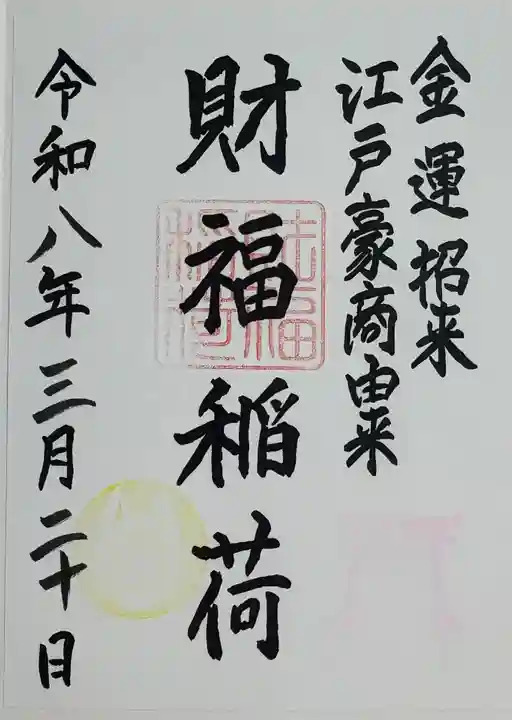 金運招来
江戸豪商由来
財福稲荷
財福
稲荷
令和八年三月二十日